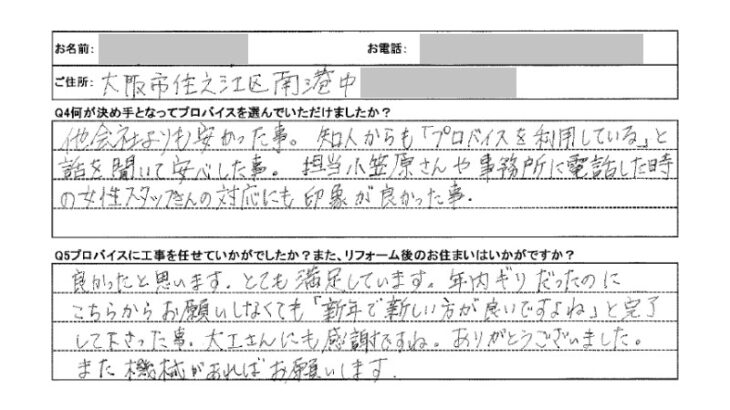 お名前: お電話:
ご住所: 大阪市住之江区南港中
Q4何が決め手となってプロバイスを選んでいただけましたか？
他会社よりも安かった事。知人からも「プロバイスを利用している」と
話を聞いて安心した事。担当小笠原さんや事務所に電話した時
の女性スタッフさんの対応にも印象が良かった事.
Q5プロバイスに工事を任せていかがでしたか？また、リフォーム後のお住まいはいかがですか？
良かったと思います. とても満足しています。年内ギリだったのに
こちらからお願いしなくても「新年で新しい方が良いですよね」と完了
して下さった事. 大工さんにも感謝ですね。ありがとうございました。
また機械があればお願いします.